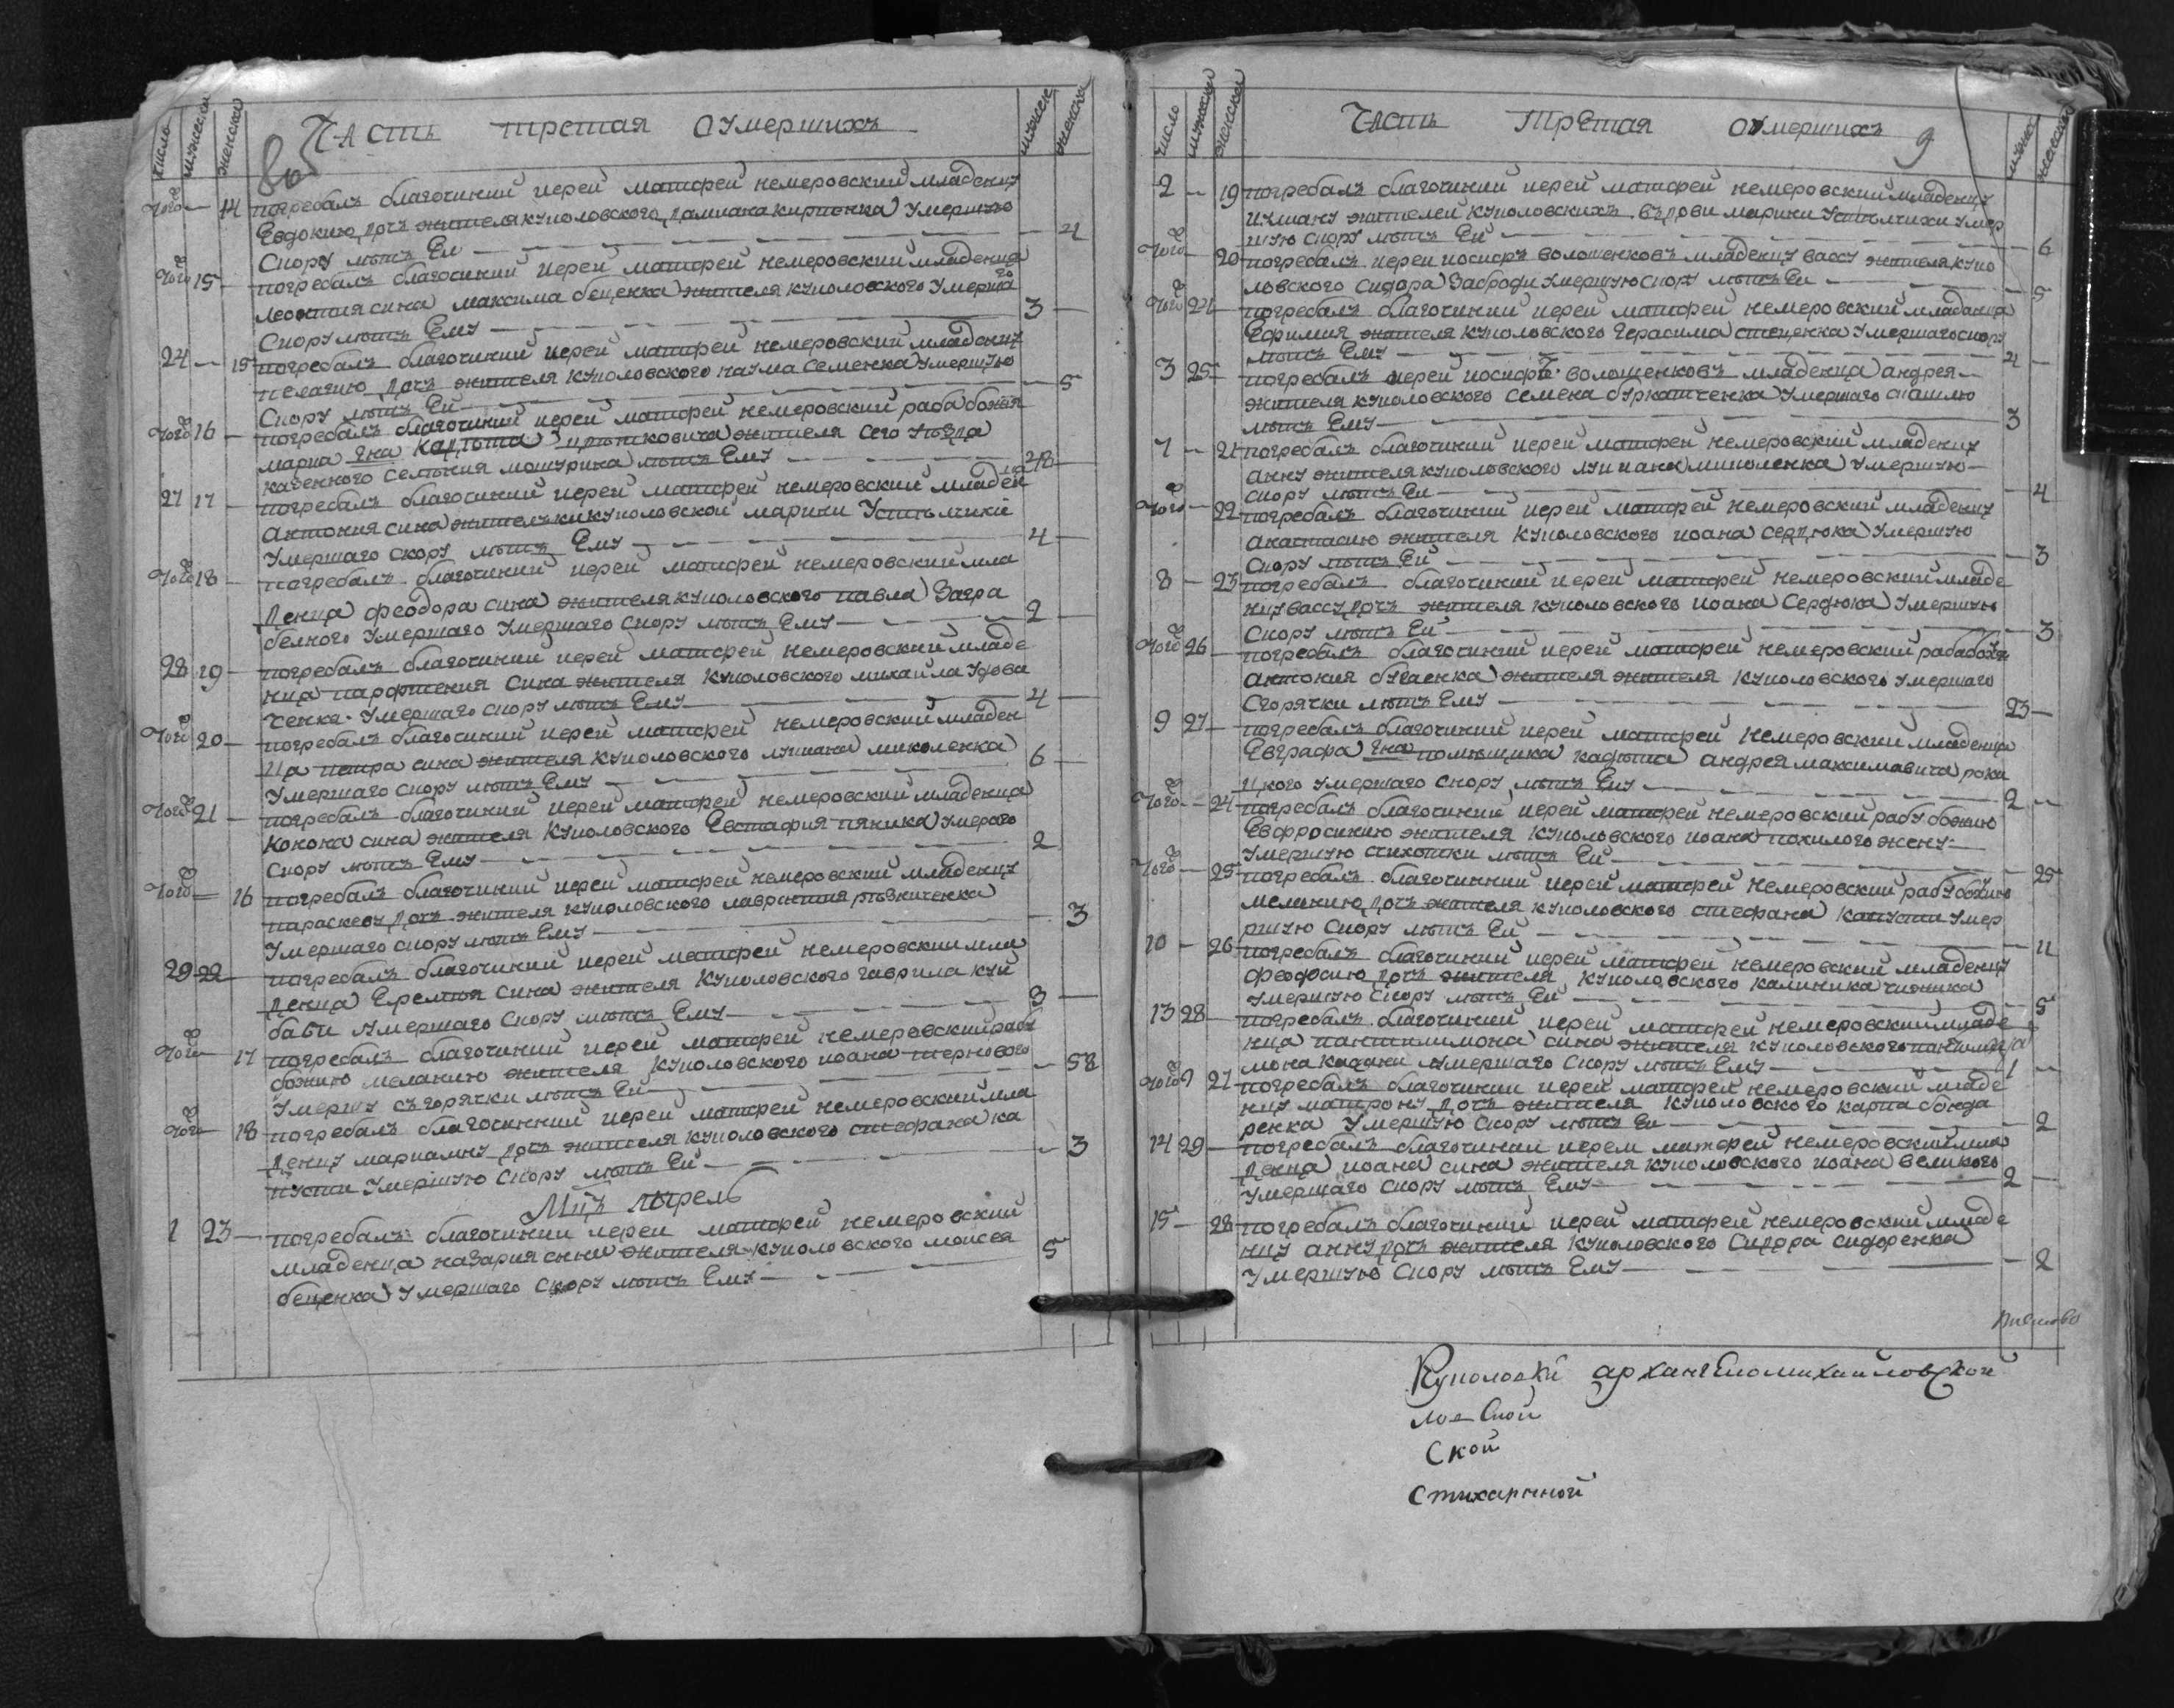 число мужеска женска Часть третая оумершихъ мужеск женска
80
тогоже — 14 погребалъ благочиний иерей матфей немеровский младенцу
Евдокию дочь жителя куполовского дамиана кирпонка умершую
Скору лѣтъ Ей — 4
тогоже 15 — погребалъ благочиний иерей матфей немеровский младенца
леонтия сина максима беценка жителя куполовского умершаго
Скору лѣтъ Ему — 3 —
24 — 15 погребалъ благочиний иерей матфей немеровский младенцу
пелагию дочь жителя куполовского наума семенка умершую
Скору лѣтъ Ей — 5
тогоже 16 — погребалъ благочиний иерей матфей немеровский раба божия
марка Гна кадпта жителя сего уезда
казенного селения мошурика лѣтъ Ему — 28
27 17 — погребалъ благочиний иерей матфей немеровский младенца
антония сина жителки куполовской марини
умершаго скору лѣтъ Ему — 4 —
тогоже 18 — погребалъ благочиний иерей матфей немеровский мла
денца феодора сина жителя куполовского павла Загра
белного умершаго умершаго скору лѣтъ Ему — 2
28 19 — погребалъ благочиний иерей матфей немеровский младе
нца парфтения сина жителя куполовского михаила удова
ченка умершаго скору лѣтъ Ему — 4 —
тогоже 20 — погребалъ благочиний иерей матфей немеровский младен
ца петра сина жителя куполовского лупиана миколенка
умершаго скору лѣтъ Ему — 6 —
тогоже 21 — погребалъ благочиний иерей матфей немеровский младенца
конона сина жителя куполовского Евстафия пяника умераго
скору лѣтъ Ему — 2
тогоже — 16 погребалъ благочиний иерей матфей немеровский младенцу
параскеву дочь жителя куполовского лаврентия рѣзниченка
умершаго скору лѣтъ Ему — 3
29 22 — погребалъ благочиний иерей матфей немеровский мла
денца Еремия сина жителя куполовского гаврила куй
бати умершаго скору лѣтъ Ему — 3 —
тогоже — 17 погребалъ благочиний иерей матфей немеровский рабу
божию меланию жителя куполовского иоана тернового
умершу съгорячки лѣтъ Ей — 58
тогоже — 18 погребалъ благочиний иерей матфей немеровский мла
денцу мариамну дочь жителя куполовского стефана ка
пусти умершую скору лѣтъ Ей — 3
Мцъ апрель
1 23 — погребалъ благочиний иерей матфей немеровский
младенца назария сина жителя куполовского моисея
беценка умершаго скору лѣтъ Ему — 5
число мужеска женска Часть Третая оумершихъ 9 мужеск женска
2 — 19 погребалъ благочиний иерей матфей немеровский младенцу
иулиану жителей куполовскихъ вдови марини умер
шую скору лѣтъ Ей — 6
тогоже — 20 погребалъ иерей иосифъ волошенковъ младенцу вассу жителя купо
ловского сидора Заброди умершую скору лѣтъ Ей — 5
тогоже 24 — погребалъ благочиний иерей матфей немеровский младенца
Ефимия жителя куполовского герасима стеценка умершаго скору
лѣтъ Ему — 4 —
3 25 — погребалъ иерей иосифъ волошенковъ младенца андрея
жителя куполовского семена буркатченка умершаго
лѣтъ Ему — 3
7 — 21 погребалъ благочиний иерей матфей немеровский младенцу
анну жителя куполовского лупиана миколенка умершую
скору лѣтъ Ей — 4
тогоже — 22 погребалъ благочиний иерей матфей немеровский младенцу
анастасию жителя куполовского иоана сердюка умершую
скору лѣтъ Ей — 3
8 — 23 погребалъ благочиний иерей матфей немеровский младе
нцу вассу дочь жителя куполовского иоана Сердюка умершую
Скору лѣтъ Ей — 3
тогоже 26 — погребалъ благочиний иерей матфей немеровский раба божия
антония бугаенка жителя жителя куполовского умершаго
сгорячки лѣтъ Ему — 23 —
9 27 — погребалъ благочиний иерей матфей немеровский младенца
Евграфа Гна помѣщика кадпта андрея максимавича рока
цкого умершаго скору лѣтъ Ему — 2 —
тогоже — 24 погребалъ благочиний иерей матфей немеровский рабу божию
Евфросинию жителя куполовского иоана похилого жену
умершую счихотки лѣтъ Ей — 25
тогоже — 25 погребалъ благочинний иерей матфей немеровский рабу божию
меланию дочь жителя куполовского стефана капусти умер
ршую скору лѣтъ Ей — 11
10 — 26 погребалъ благочиний иерей матфей немеровский младенцу
феодосию дочь жителя куполовского калиника чижика
умершую скору лѣтъ Ей — 5
13 28 — погребалъ благочиний иерей матфей немеровский младе
нца пантилимона сина жителя куполовского
мона кадани умершаго скору лѣтъ Ему — 1 —
тогоже 27 погребалъ благочиний иерей матфей немеровский младе
нцу матрону дочь жителя куполовского карпа бонда
ренка умершую скору лѣтъ Ей — 2
14 29 — погребалъ благочиний иерей матфей немеровский мла
денца иоана сина жителя куполовского иоана великого
умершаго скору лѣтъ Ему — 2 —
15 — 28 погребалъ благочиний иерей матфей немеровский младе
нцу анну дочь жителя куполовского Сидора сидоренка
умершую скору лѣтъ Ему — 2
архангеломихайловской
Ской
Стихарнной